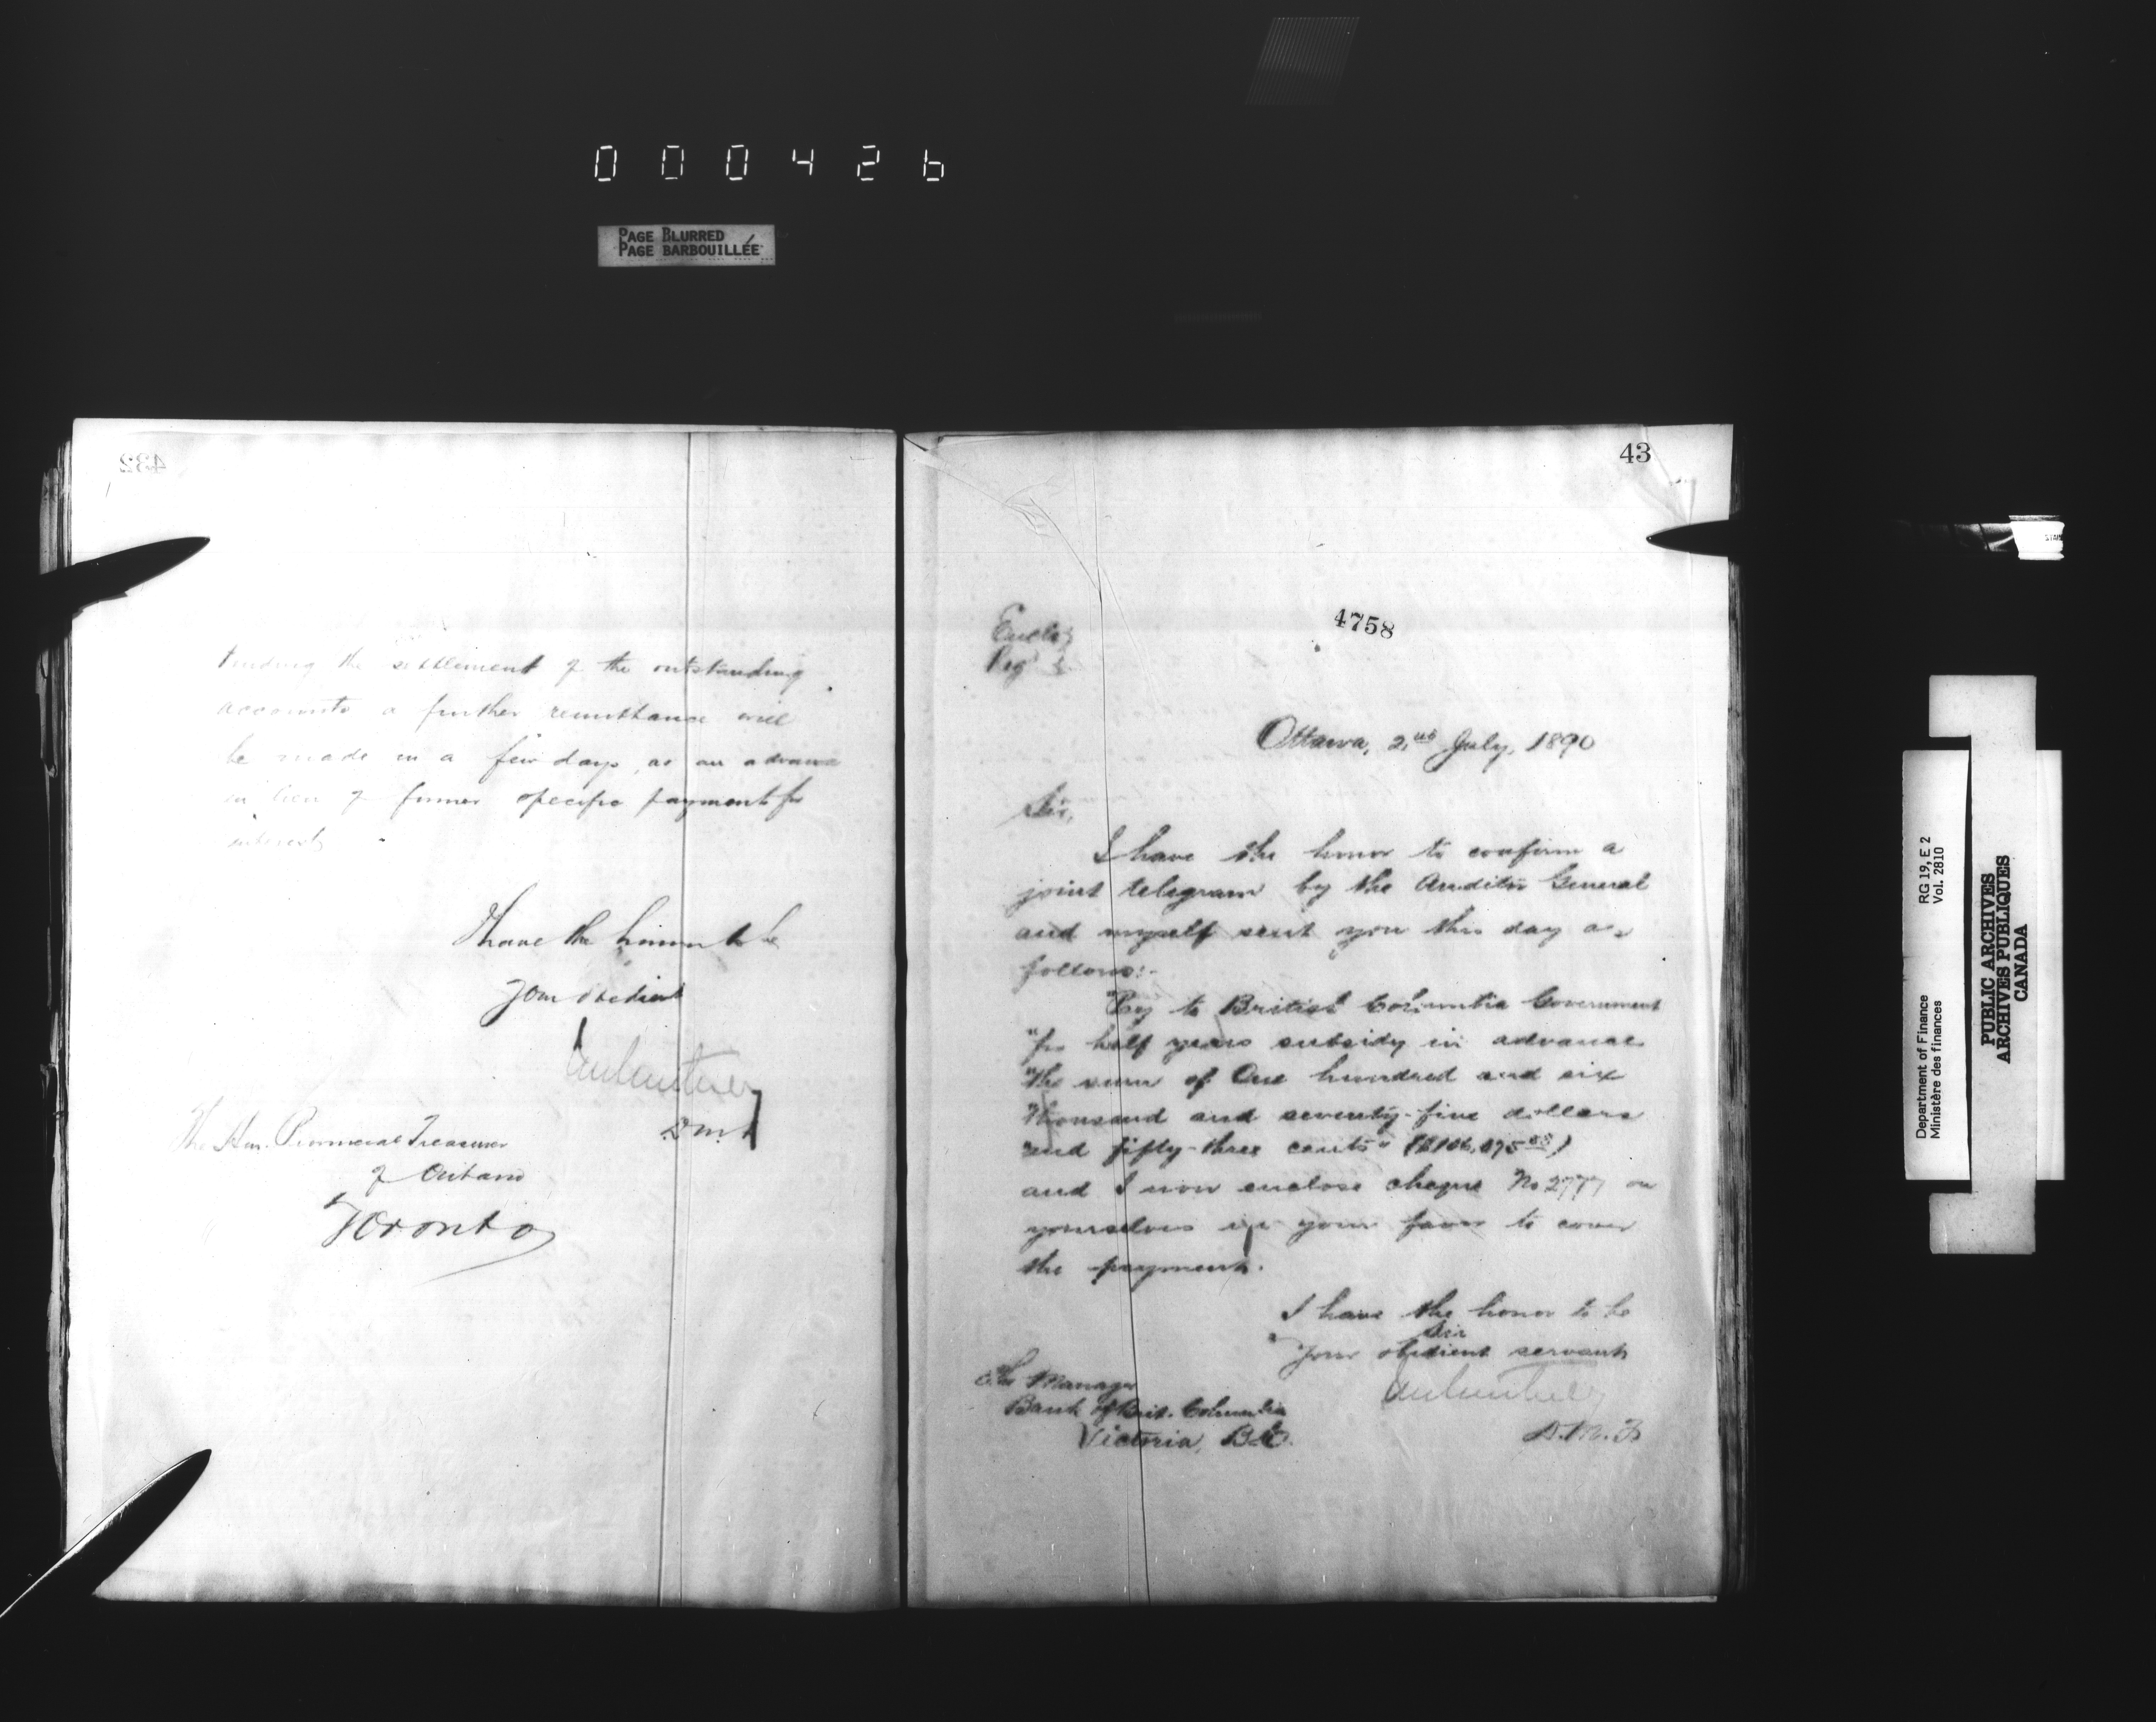 000426
PAGE BLURRED
PAGE BARBOUILLÉE
432
Pending the settlement of the outstanding
accounts a further remittance will
be made in a few days, as an advance
in lieu of former specific payment for
interest
I have the honour to be
Your obedient
D.M.F
The Hon. Provincial Treasurer
of Ontario
Toronto
43
4758
Enclo
Reg
Ottawa, 2nd July, 1890
Sir,
I have the honor to confirm a
joint telegram by the Auditor General
and myself sent you this day as
follows:-
"Pay to British Columbia Government
"for half years subsidy in advance
"the sum of One hundred and six
thousand and seventy-five dollars
and fifty-three cents" ($106,075
and I now enclose cheque No 2777 on
yourselves in your favor to cover
the payment.
I have the honor to be
Sir
Your obedient servant
D.M.F
The Manager
Bank of Brit. Columbia
Victoria, B.C.
Department of Finance RG 19, E 2
Ministère des finances Vol. 2810
PUBLIC ARCHIVES
ARCHIVES PUBLIQUES
CANADA